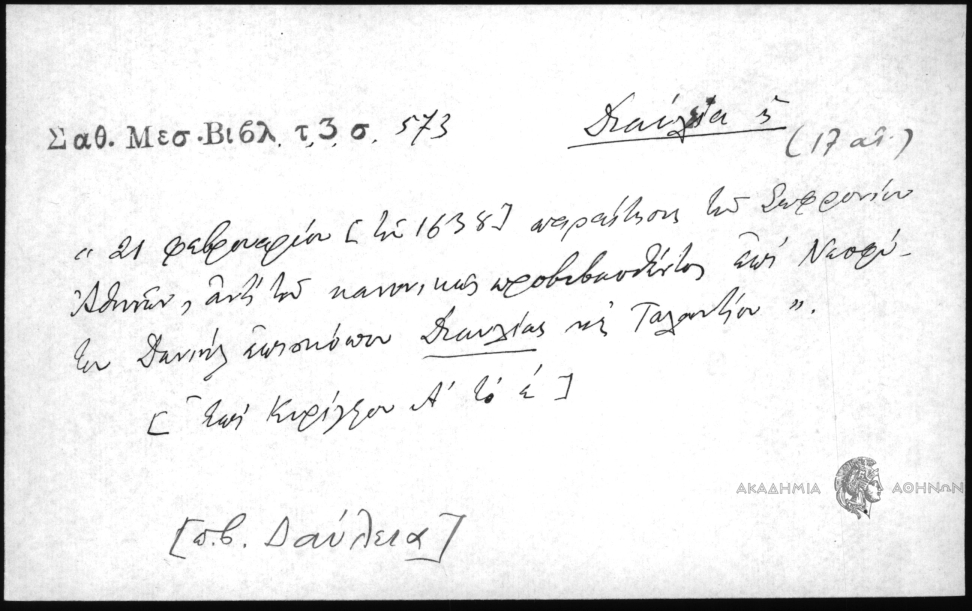 Σαθ. Μεσ. Βιβλ. τ. 3 σ. 573
Διαύλεια ἡ
(17 αἰ.)
« 21 φεβρουαρίου [τοῦ 1638] παραίτησις τοῦ Σωφρονίου
Ἀθηνῶν, ἀντὶ τοῦ κανονικῶς προβιβασθέντος ἐπὶ Νεοφύ-
του Δανιὴλ ἐπισκόπου Διαυλίας κὲ Ταλαντίου ».
[ Ἐπὶ Κυρίλλου Α' τὸ έ ]
[π.β. Δαύλεια]
ΑΚΑΔΗΜΙΑ ΑΘΗΝΩΝ